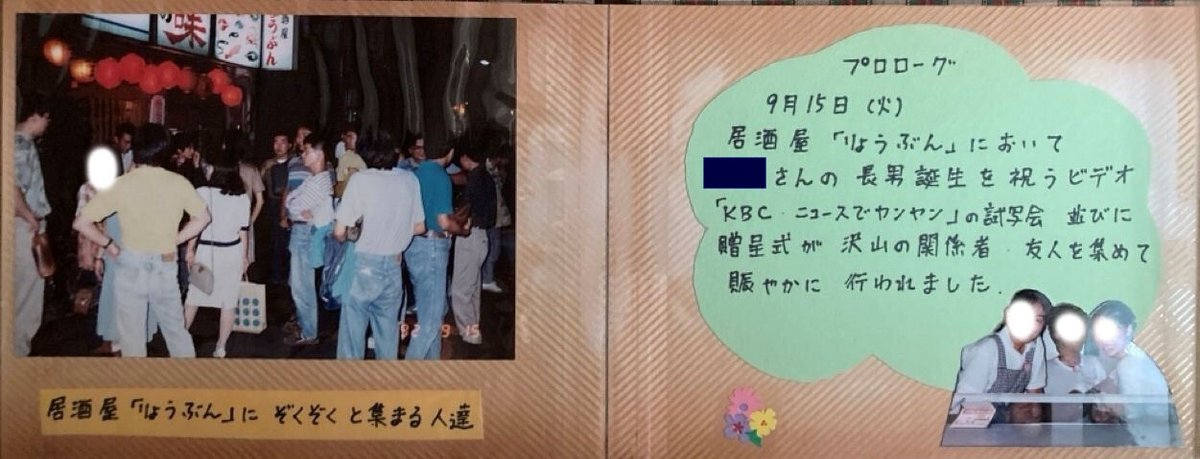 味
酒屋
ょうぶん
92 9 15
居酒屋「りょうぶん」に ぞくぞくと集まる人達
プロローグ
9月15日(火)
居酒屋「りょうぶん」において
さんの 長男誕生を祝うビデオ
「KBC・ニュースでヤンヤン」の試写会 並びに
贈呈式が 沢山の関係者・友人を集めて
賑やかに 行われました.